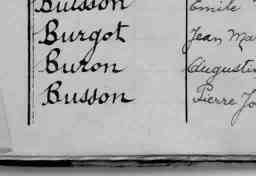 Buisson Emile
Burgot Jean Ma
Buron Augustin
Busson Pierre Jo